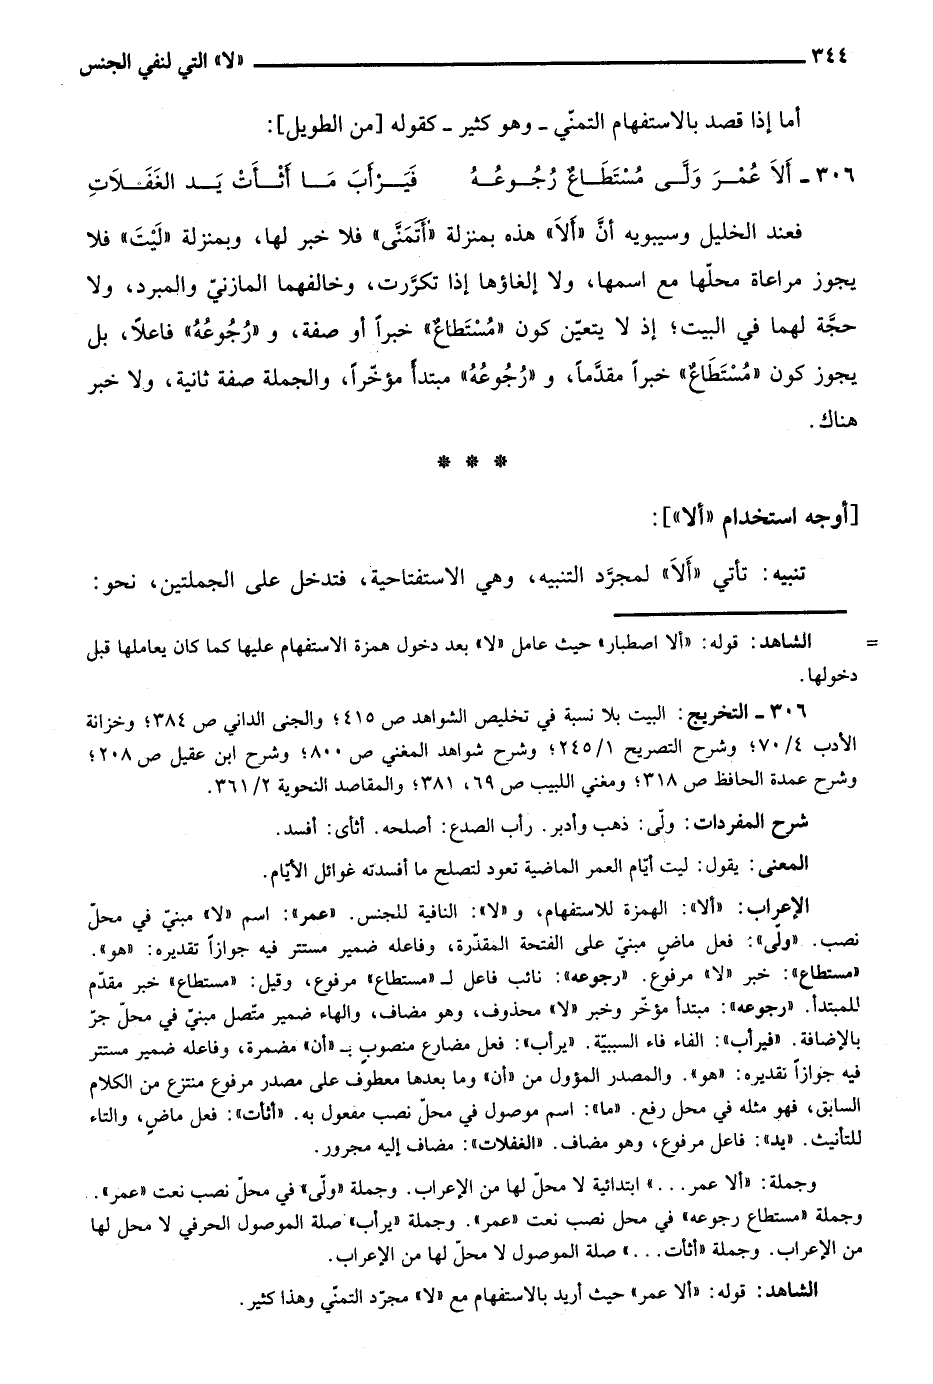 ٣٤٤ «لا» التي لنفي الجنس
أما إذا قصد بالاستفهام التمنّي ـ وهو كثير ـ كقوله [من الطويل]:
٣٠٦ ـ أَلاَ عُمْرَ وَلَّى مُسْتَطَاعٌ رُجُوعُهُ فَيَرْأَبَ مَا أَثْأَتْ يَد الغَفَلَاتِ
فعند الخليل وسيبويه أنَّ «أَلاَ» هذه بمنزلة «أَتَمَنَّى» فلا خبر لها، وبمنزلة «لَيْتَ» فلا
يجوز مراعاة محلّها مع اسمها، ولا إلغاؤها إذا تكرَّرت، وخالفهما المازنيّ والمبرد، ولا
حجَّة لهما في البيت؛ إذ لا يتعيّن كون «مُسْتَطاعٌ» خبراً أو صفة، و «رُجُوعُهُ» فاعلاً، بل
يجوز كون «مُسْتَطَاعٌ» خبراً مقدَّماً، و «رُجُوعُهُ» مبتدأ مؤخّراً، والجملة صفة ثانية، ولا خبر
هناك.
* * *
[أوجه استخدام «ألا»]:
تنبيه: تأتي «أَلاَ» لمجرَّد التنبيه، وهي الاستفتاحية، فتدخل على الجملتين، نحو:
= الشاهد: قوله: «ألا اصطبار» حيث عامل «لا» بعد دخول همزة الاستفهام عليها كما كان يعاملها قبل
دخولها.
٣٠٦ ـ التخريج: البيت بلا نسبة في تخليص الشواهد ص ٤١٥؛ والجنى الداني ص ٣٨٤؛ وخزانة
الأدب ٧٠/٤؛ وشرح التصريح ٢٤٥/١؛ وشرح شواهد المغني ص ٨٠٠؛ وشرح ابن عقيل ص ٢٠٨؛
وشرح عمدة الحافظ ص ٣١٨؛ ومغني اللبيب ص ٦٩، ٣٨١؛ والمقاصد النحوية ٣٦١/٢.
شرح المفردات: ولّى: ذهب وأدبر. رأب الصدع: أصلحه. أثأى: أفسد.
المعنى: يقول: ليت أيّام العمر الماضية تعود لتصلح ما أفسدته غوائل الأيّام.
الإعراب: «ألا»: الهمزة للاستفهام، و «لا»: النافية للجنس. «عمر»: اسم «لا» مبنيّ في محلّ
نصب. «ولّى»: فعل ماضٍ مبنيّ على الفتحة المقدّرة، وفاعله ضمير مستتر فيه جوازاً تقديره: «هو».
«مستطاع»: خبر «لا» مرفوع. «رجوعه»: نائب فاعل لـ «مستطاع» مرفوع، وقيل: «مستطاع» خبر مقدّم
للمبتدأ. «رجوعه»: مبتدأ مؤخّر وخبر «لا» محذوف، وهو مضاف، والهاء ضمير متّصل مبنيّ في محلّ جرّ
بالإضافة. «فيرأب»: الفاء فاء السببيّة. «يرأب»: فعل مضارع منصوب بـ «أن» مضمرة، وفاعله ضمير مستتر
فيه جوازاً تقديره: «هو». والمصدر المؤول من «أن» وما بعدها معطوف على مصدر مرفوع منتزع من الكلام
السابق، فهو مثله في محل رفع. «ما»: اسم موصول في محلّ نصب مفعول به. «أثأت»: فعل ماضٍ، والتاء
للتأنيث. «يد»: فاعل مرفوع، وهو مضاف. «الغفلات»: مضاف إليه مجرور.
وجملة: «ألا عمر...» ابتدائية لا محلّ لها من الإعراب. وجملة «ولّى» في محلّ نصب نعت «عمر».
وجملة «مستطاع رجوعه» في محل نصب نعت «عمر». وجملة «يرأب» صلة الموصول الحرفي لا محل لها
من الإعراب. وجملة «أثأت...» صلة الموصول لا محلّ لها من الإعراب.
الشاهد: قوله: «ألا عمر» حيث أريد بالاستفهام مع «لا» مجرّد التمنّي وهذا كثير.